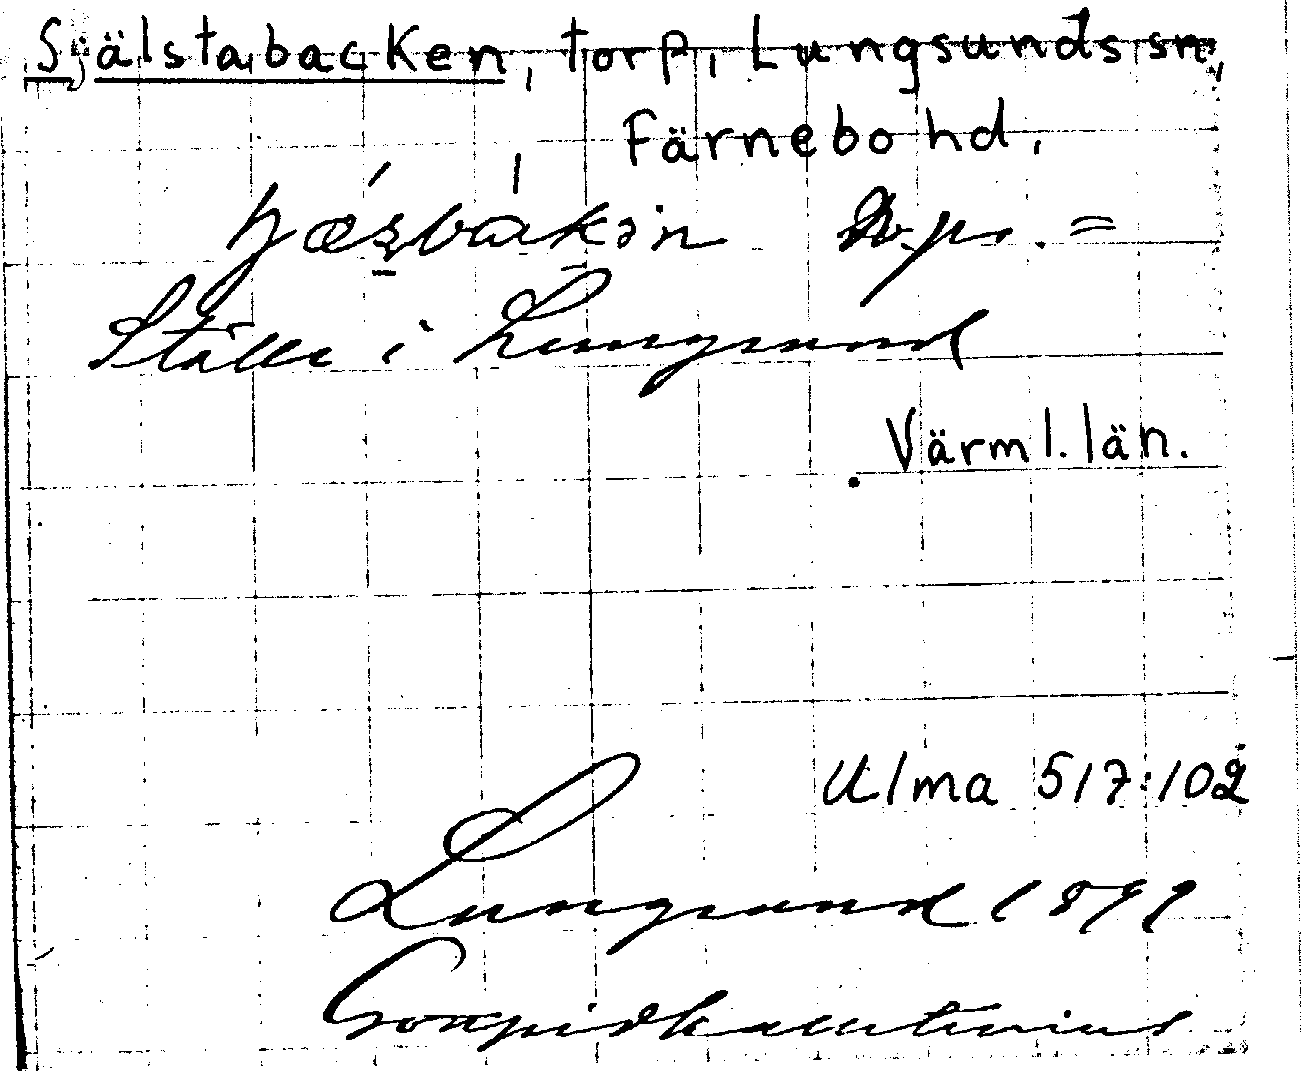 Själstabacken, torp, Lungsunds sn,
Färnebo hd.
n. pr. =
Ställe i Lungsund
Värml. län.
Ulma 517:102
Lungsund 1899